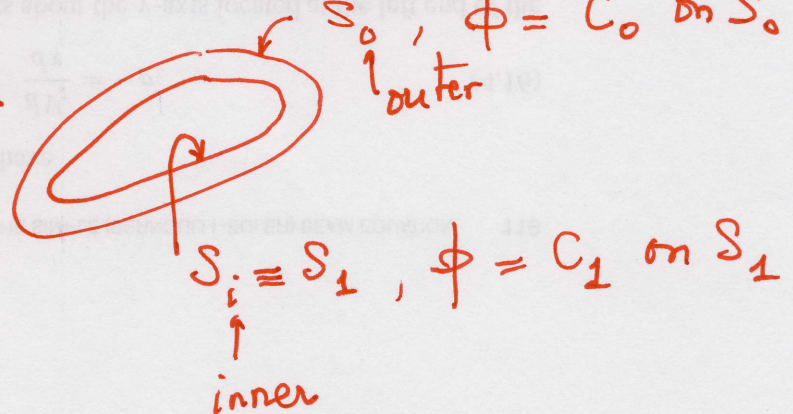 S₀, ϕ = C₀ on S₀
outer
Sᵢ ≡ S₁, ϕ = C₁ on S₁
inner